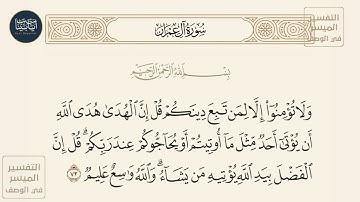 آيات بينات
سُورَةُ آلِ عِمْرَانَ
التفسير
الميسر
في الوصف
بِسْمِ اللَّهِ الرَّحْمَٰنِ الرَّحِيمِ
وَلَا تُؤْمِنُوٓا۟ إِلَّا لِمَن تَبِعَ دِينَكُمْ قُلْ إِنَّ ٱلْهُدَىٰ هُدَى ٱللَّهِ
أَن يُؤْتَىٰٓ أَحَدٌ مِّثْلَ مَآ أُوتِيتُمْ أَوْ يُحَآجُّوكُمْ عِندَ رَبِّكُمْ ۗ قُلْ إِنَّ
ٱلْفَضْلَ بِيَدِ ٱللَّهِ يُؤْتِيهِ مَن يَشَآءُ ۗ وَٱللَّهُ وَٰسِعٌ عَلِيمٌ ٧٣
التفسير
الميسر
في الوصف